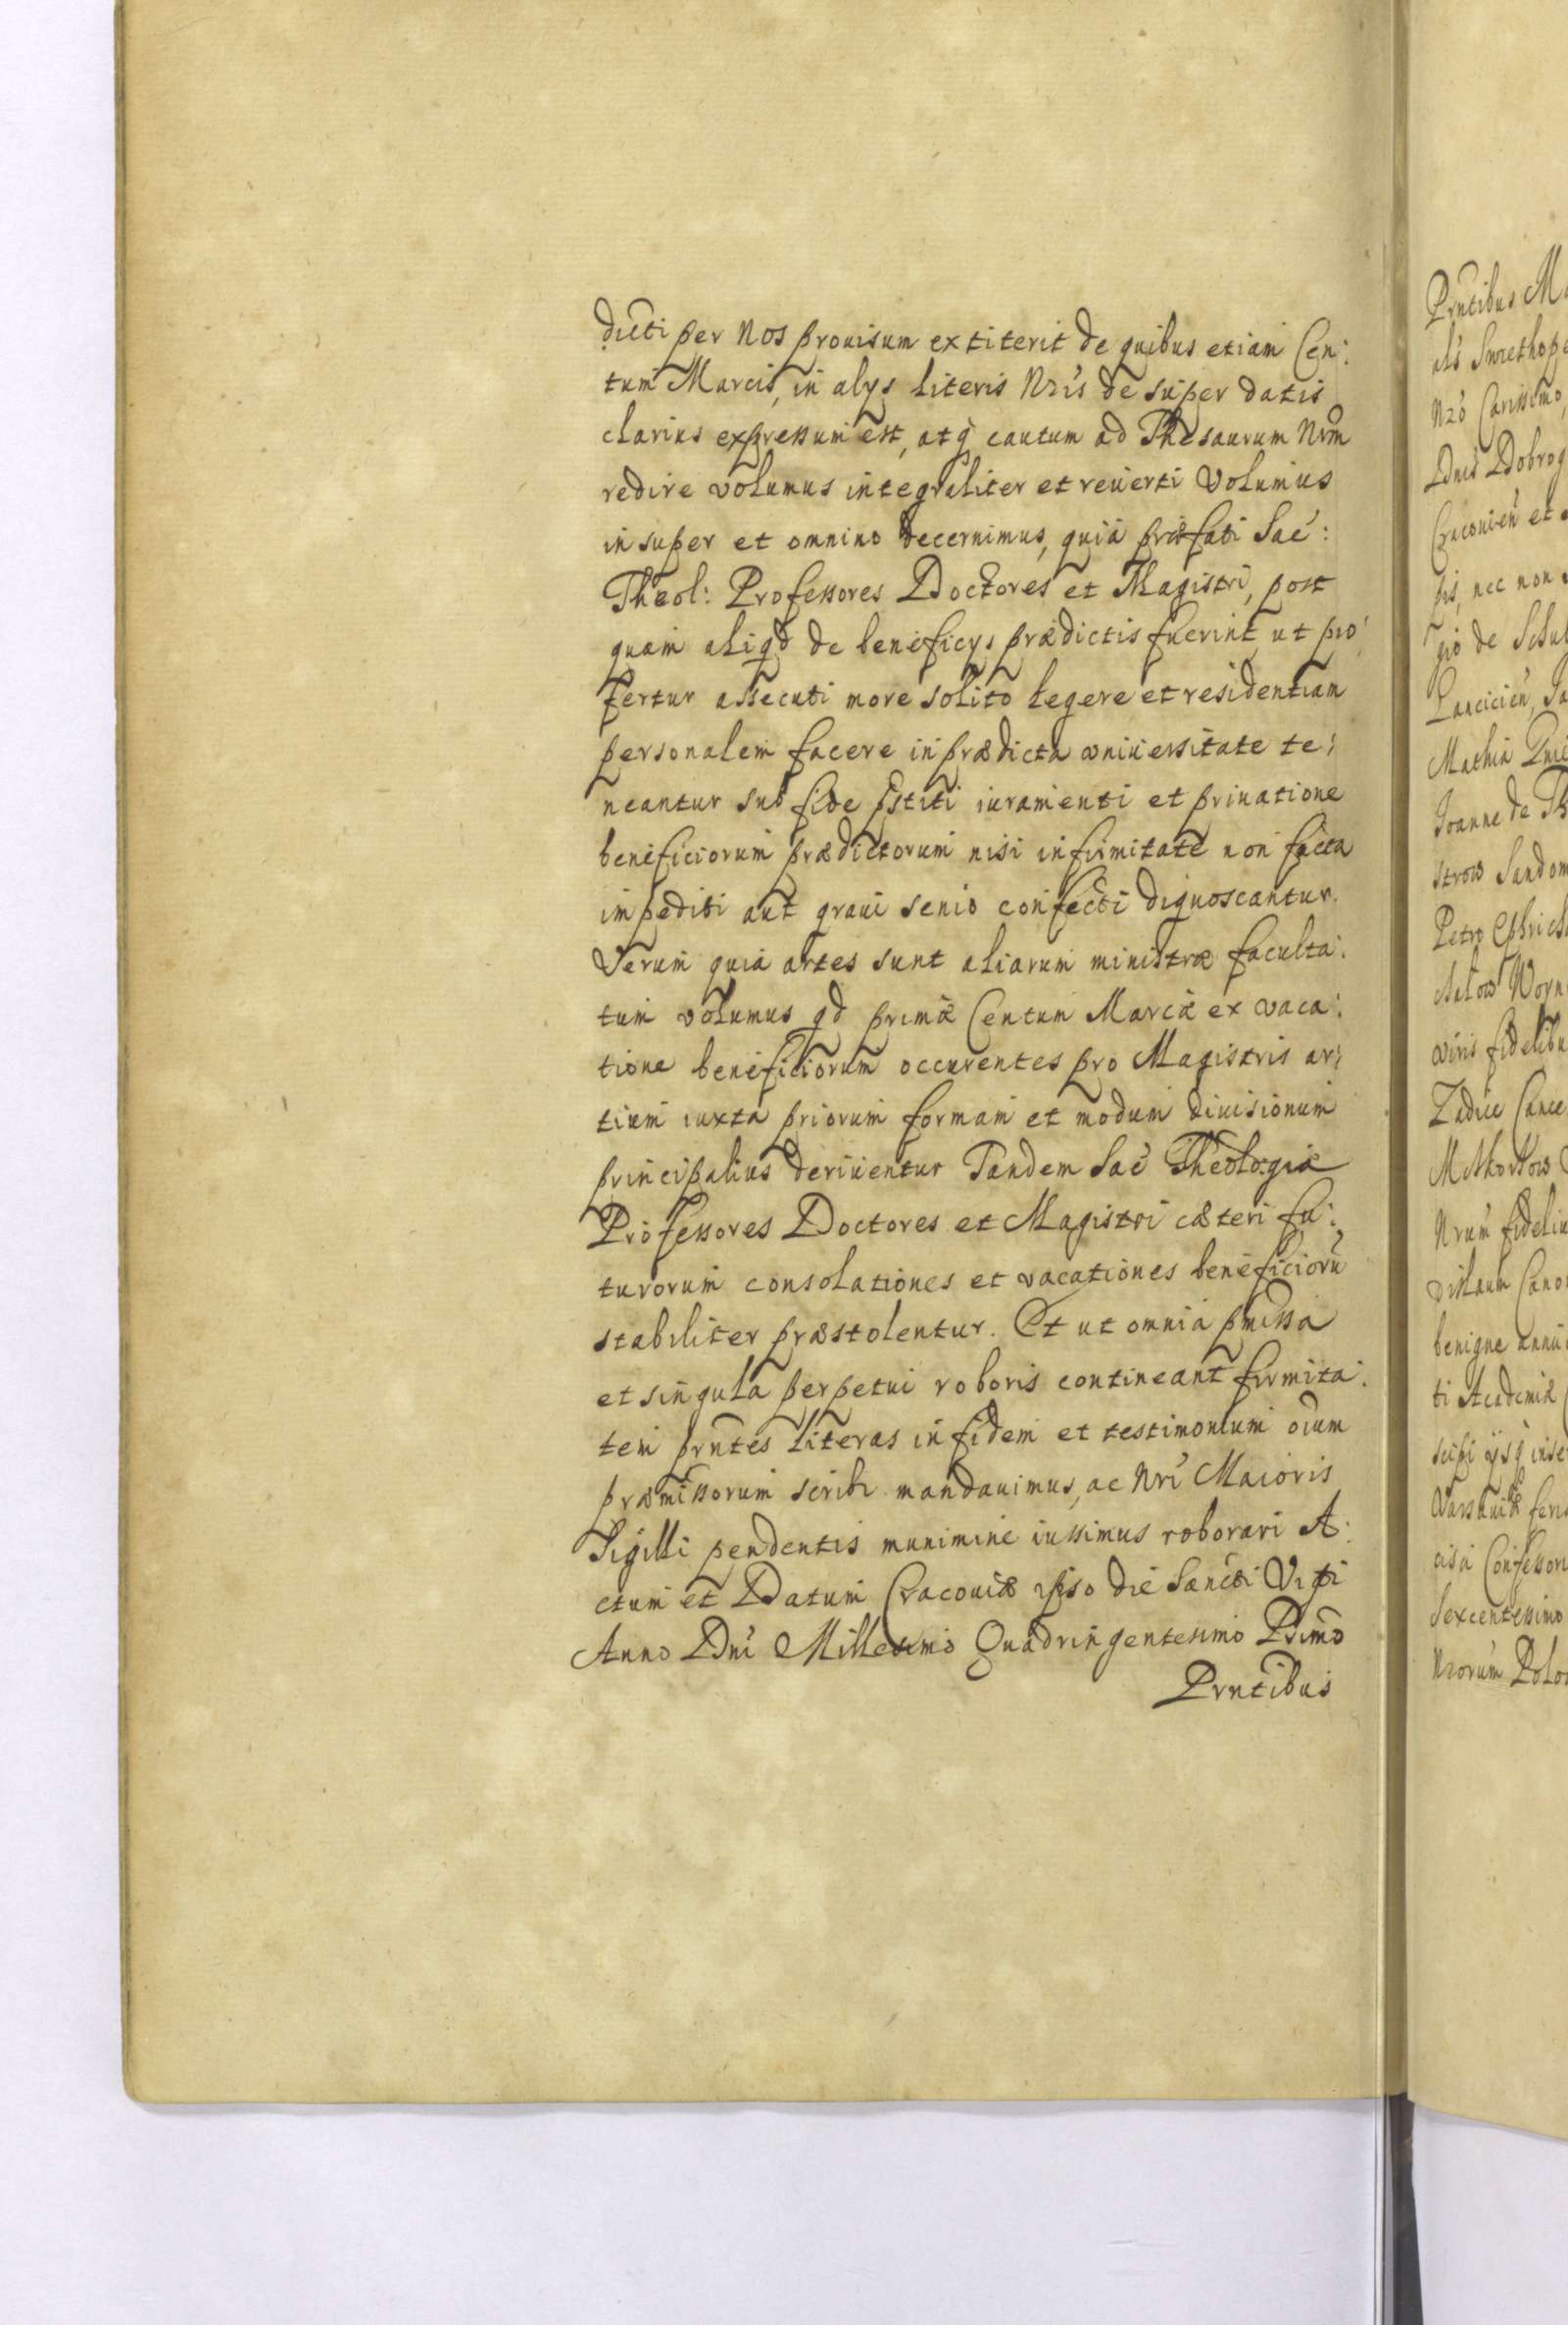 dicti per Nos prouisum extiterit de quibus etiam Cen:
tum Marcis, in alys literis Nris de super datis
clarius expressum est, atq cautum ad Thesaurum Nrm
redire volumus integraliter et reuerti Volumus
in super et omnino decernimus, quia præfati Sac:
Theol: Professores Doctores et Magistri, post
quam aliqd de beneficys prædictis fuerint ut præ:
fertur assecuti more solito legere et residentiam
personalem facere in prædicta vniuersitate te:
neantur sub fide pstiti iuramenti et priuatione
beneficiorum prædictorum nisi infirmitate non facta
impediti aut graui senio confecti dignoscantur.
Verum quia artes sunt aliarum ministræ faculta:
tum volumus qd primæ Centum Marcæ ex vaca:
tione beneficiorum occurentes pro Magistris ar:
tium iuxta priorum formam et modum diuisionum
principalius deriuentur Tandem Sac Theologiæ
Professores Doctores et Magistri cæteri fu:
turorum consolationes et vacationes beneficiorū
stabiliter præstolentur. Et ut omnia pmissa
et singula perpetui roboris contineant firmita:
tem prntes literas in fidem et testimonium oium
præmissorum scribi mandauimus, ac Nri Maioris
Sigilli pendentis munimine iussimus roborari A:
ctum et Datum Cracouiæ ipso die Sancti Viti
Anno Dni Millesimo Quadringentesimo Primo
Prntibus
Prntibus
als Swiethope
Nro Carissimo,
Dnis Dobrog
Cracouien et
pis, nec non
gio de Schub
Lancicien, Ja
Mathia
Joanne de Th
strow Sandom
Petro
viris fidelibu
Zadice Cance
Nrum fideliu
dislaum Cano
benigne annu
ti Academiæ
scipi ysq inse
Varsauiæ feri
cisci Confessori
Sexcentesimo
Nrorum Polo